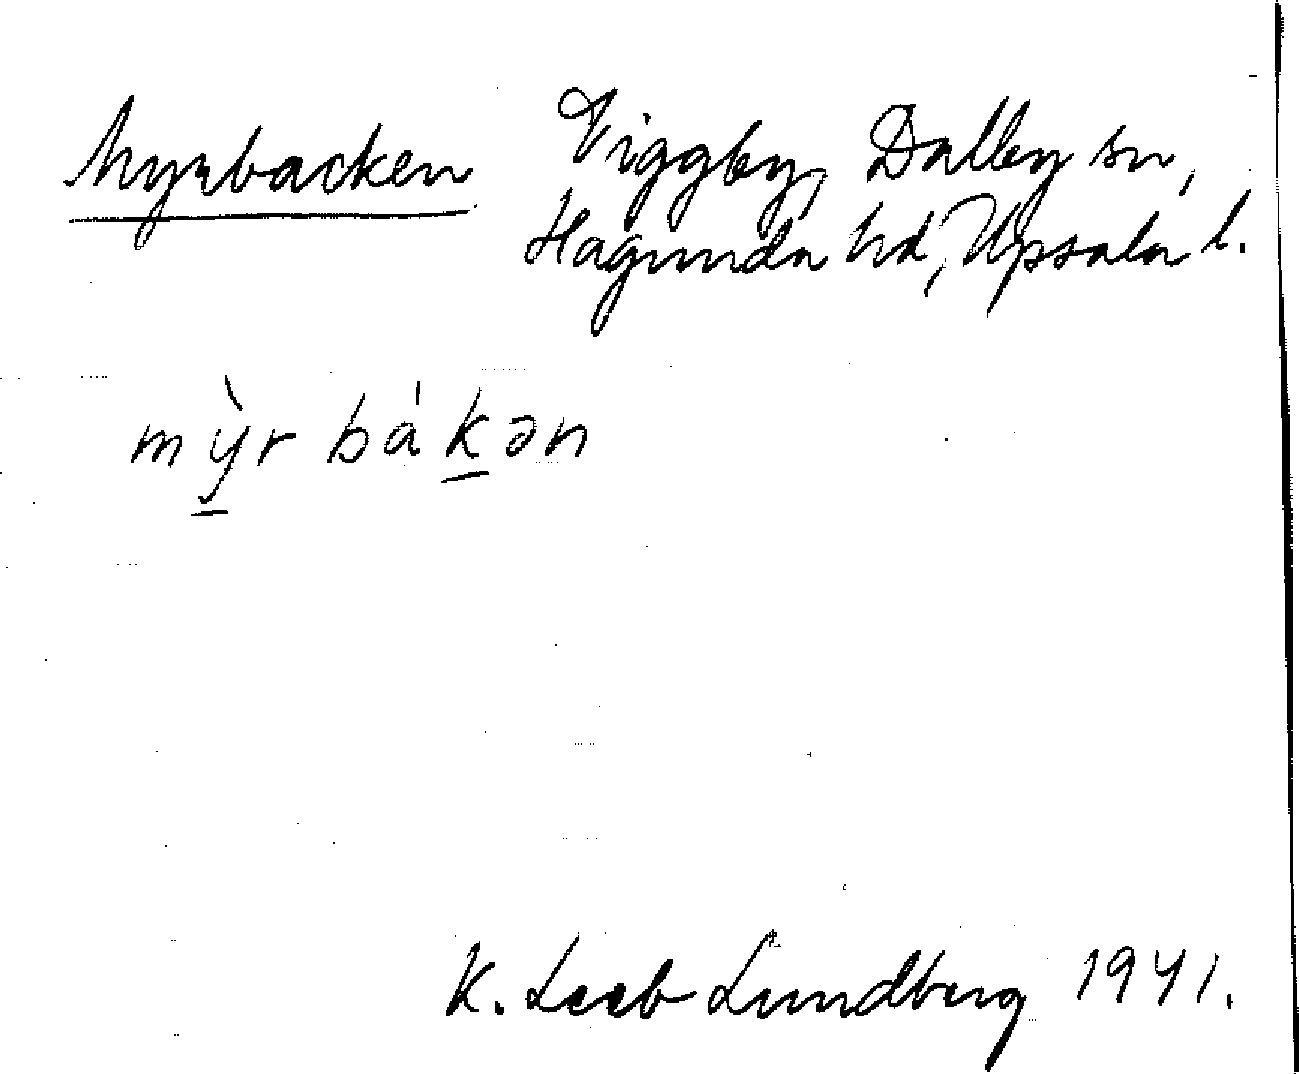 Myrbacken Viggby, Dalby sn,
Hagunda hd, Upsala l.
mỳ̱r bák̠ən
K. Leeb-Lundberg 1941.